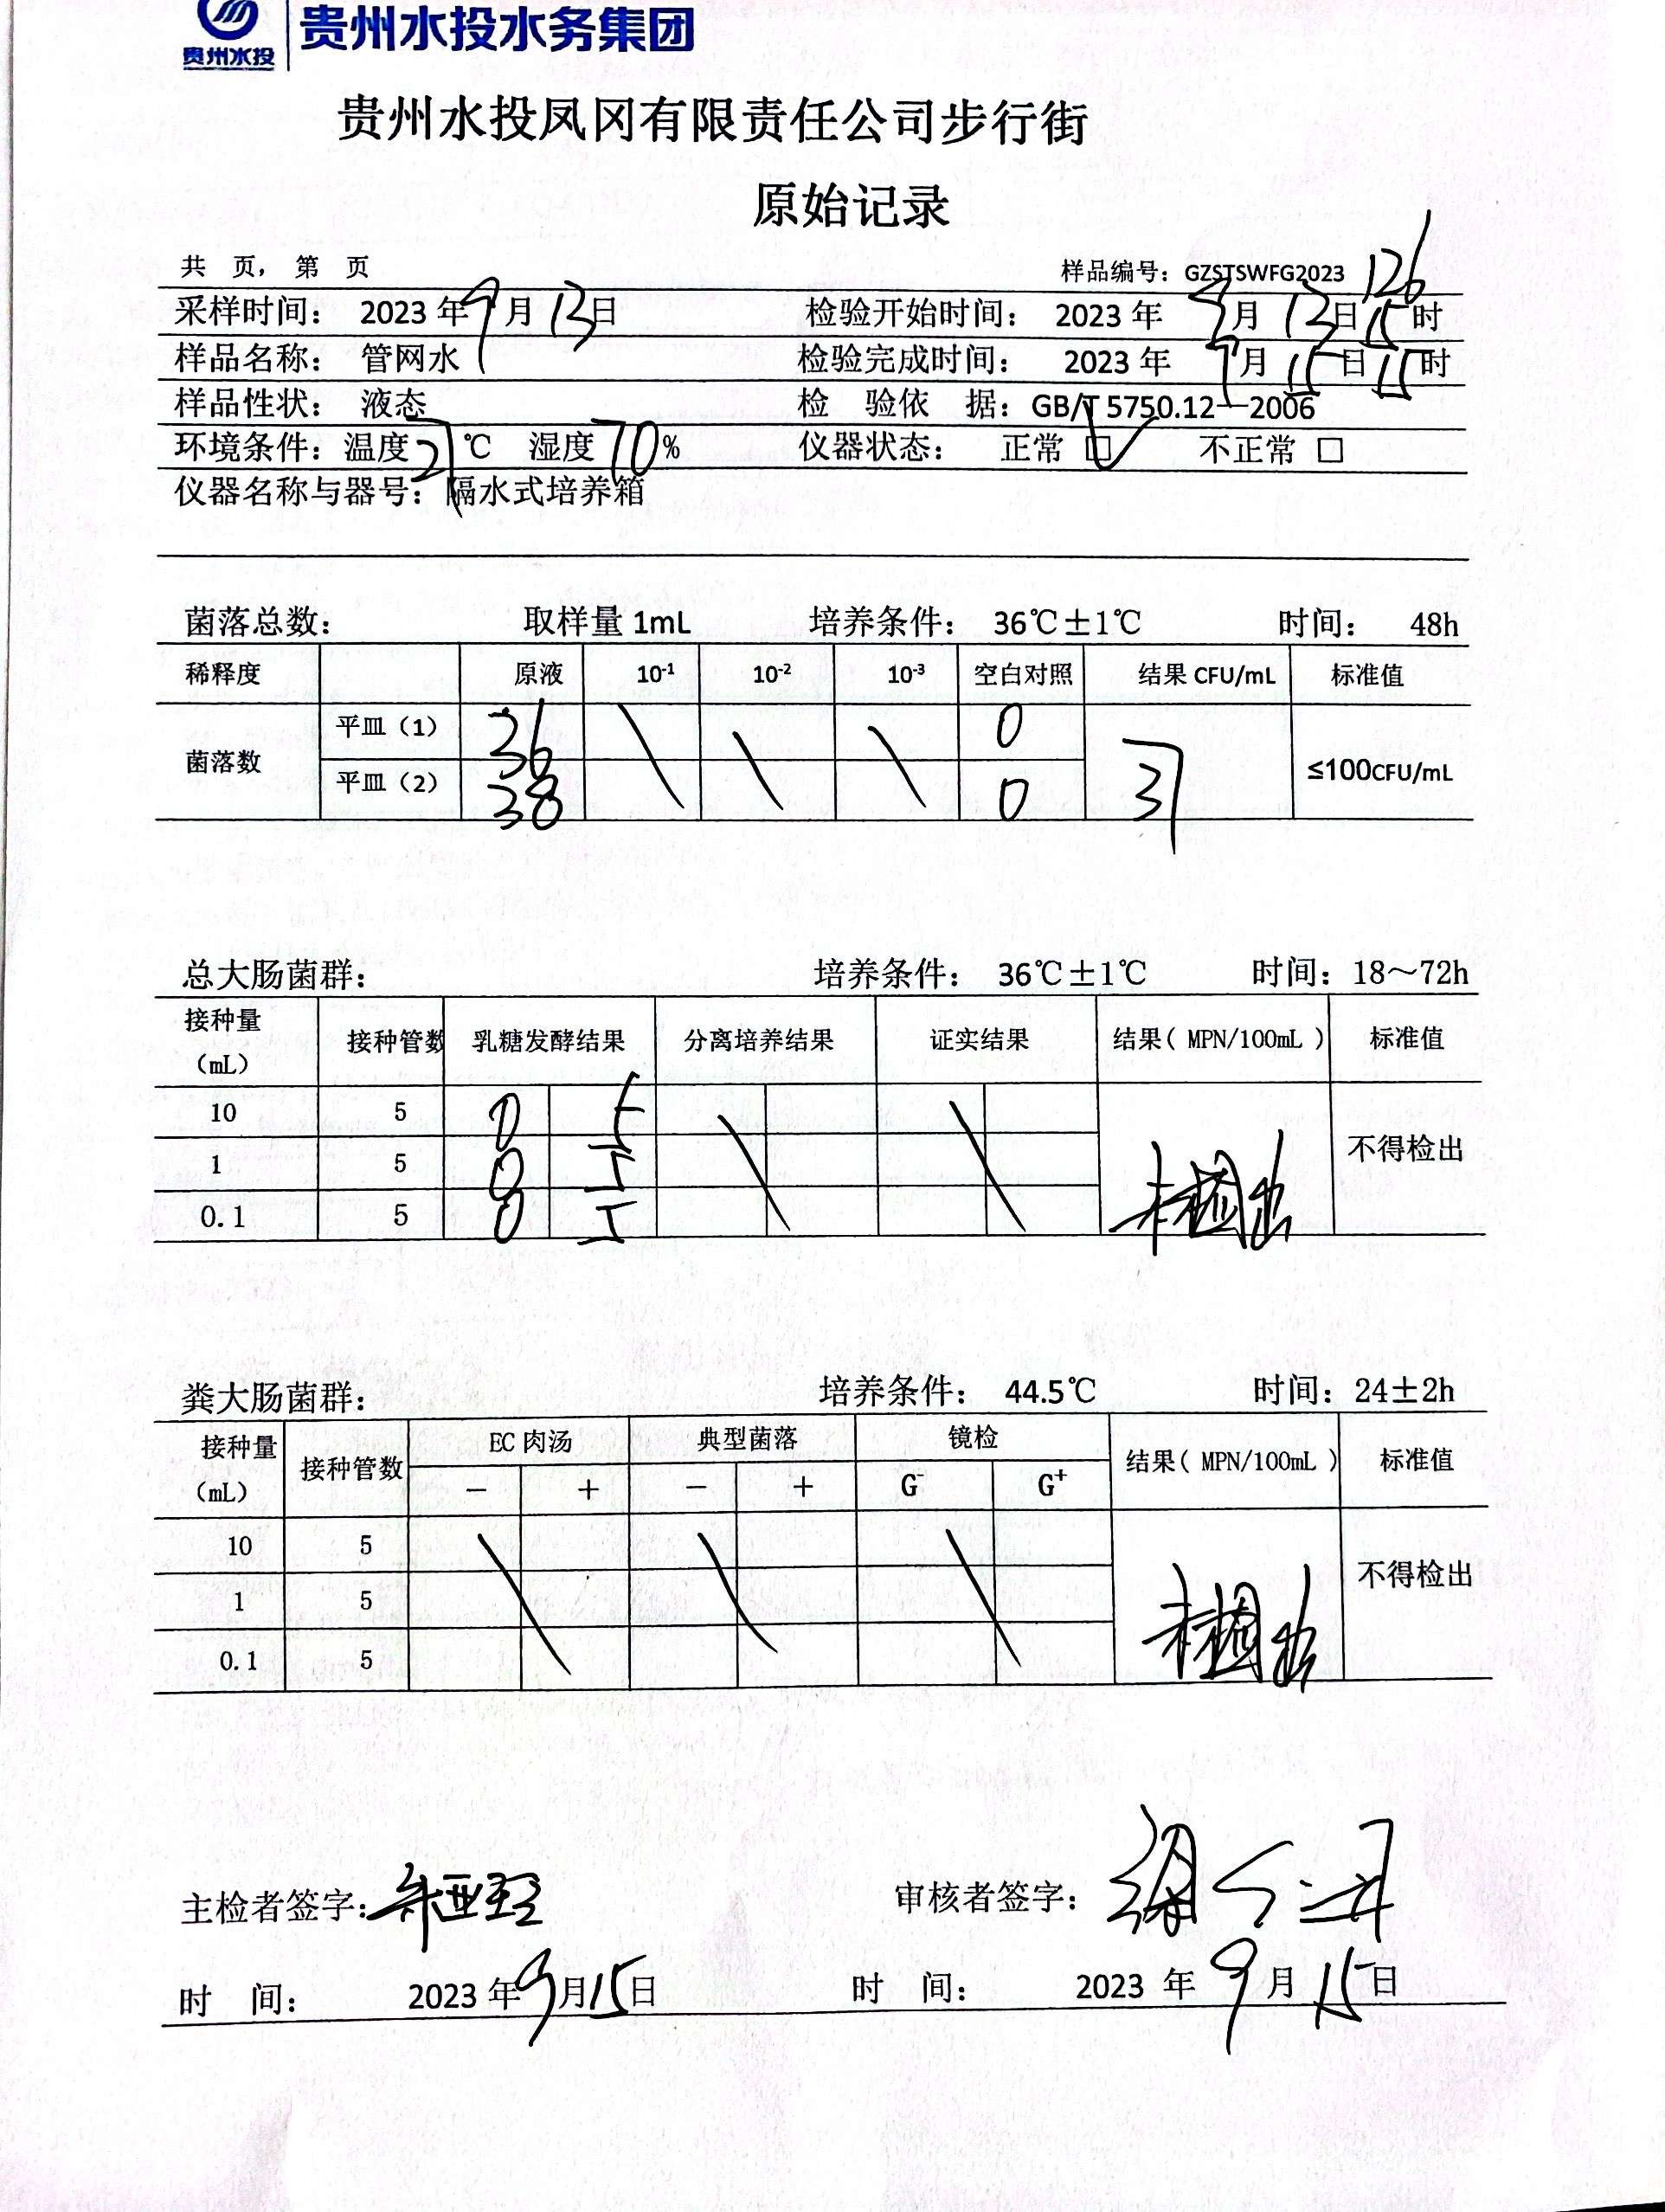 贵州水投 贵州水投水务集团
贵州水投凤冈有限责任公司步行街
原始记录
共 页，第 页 样品编号：GZSTSWFG2023 126
采样时间： 2023 年 9 月 13 日 检验开始时间： 2023 年 9 月 13 日 15 时
样品名称： 管网水 检验完成时间： 2023 年 9 月 15 日 15 时
样品性状： 液态 检 验依 据：GB/T 5750.12—2006
环境条件：温度 27 ℃ 湿度 70 % 仪器状态： 正常 ☑ 不正常 □
仪器名称与器号：隔水式培养箱
菌落总数： 取样量 1mL 培养条件： 36℃±1℃ 时间： 48h
稀释度 原液 10⁻¹ 10⁻² 10⁻³ 空白对照 结果 CFU/mL 标准值
菌落数 平皿（1） 36 \ \ \ 0 37 ≤100CFU/mL
平皿（2） 38 0
总大肠菌群： 培养条件： 36℃±1℃ 时间：18～72h
接种量（mL） 接种管数 乳糖发酵结果 分离培养结果 证实结果 结果（ MPN/100mL ） 标准值
10 5 0 5 \ \ 未检出 不得检出
1 5 0 5
0.1 5 0 5
粪大肠菌群： 培养条件： 44.5℃ 时间：24±2h
接种量（mL） 接种管数 EC 肉汤 典型菌落 镜检 结果（ MPN/100mL ） 标准值
— + — + G⁻ G⁺
10 5 \ \ \ 未检出 不得检出
1 5
0.1 5
主检者签字： 审核者签字：
时 间： 2023 年 9 月 15 日 时 间： 2023 年 9 月 15 日